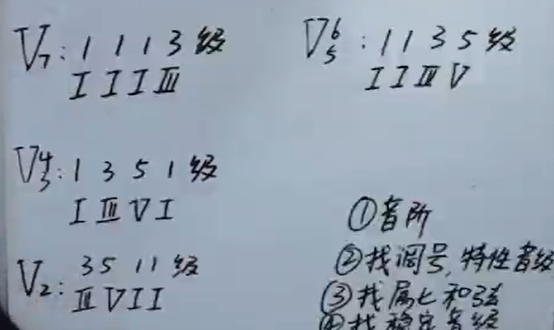 V7: 1 1 1 3 级
I I I III
V6 5: 1 1 3 5 级
I I III V
V4 3: 1 3 5 1 级
I III V I
V2: 3 5 1 1 级
III V I I
①音阶
②找调号,特性音级
③找属七和弦
④找稳定音级